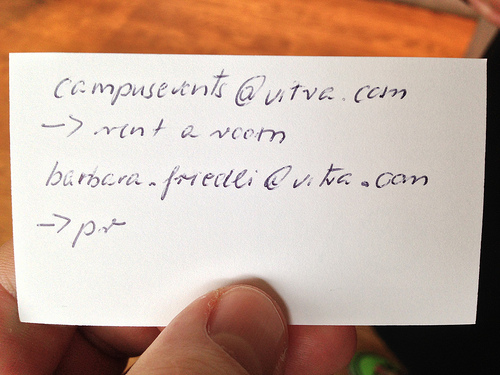 campusevents@vitra.com
-> rent a room
barbara.friedli@vitra.com
-> pr